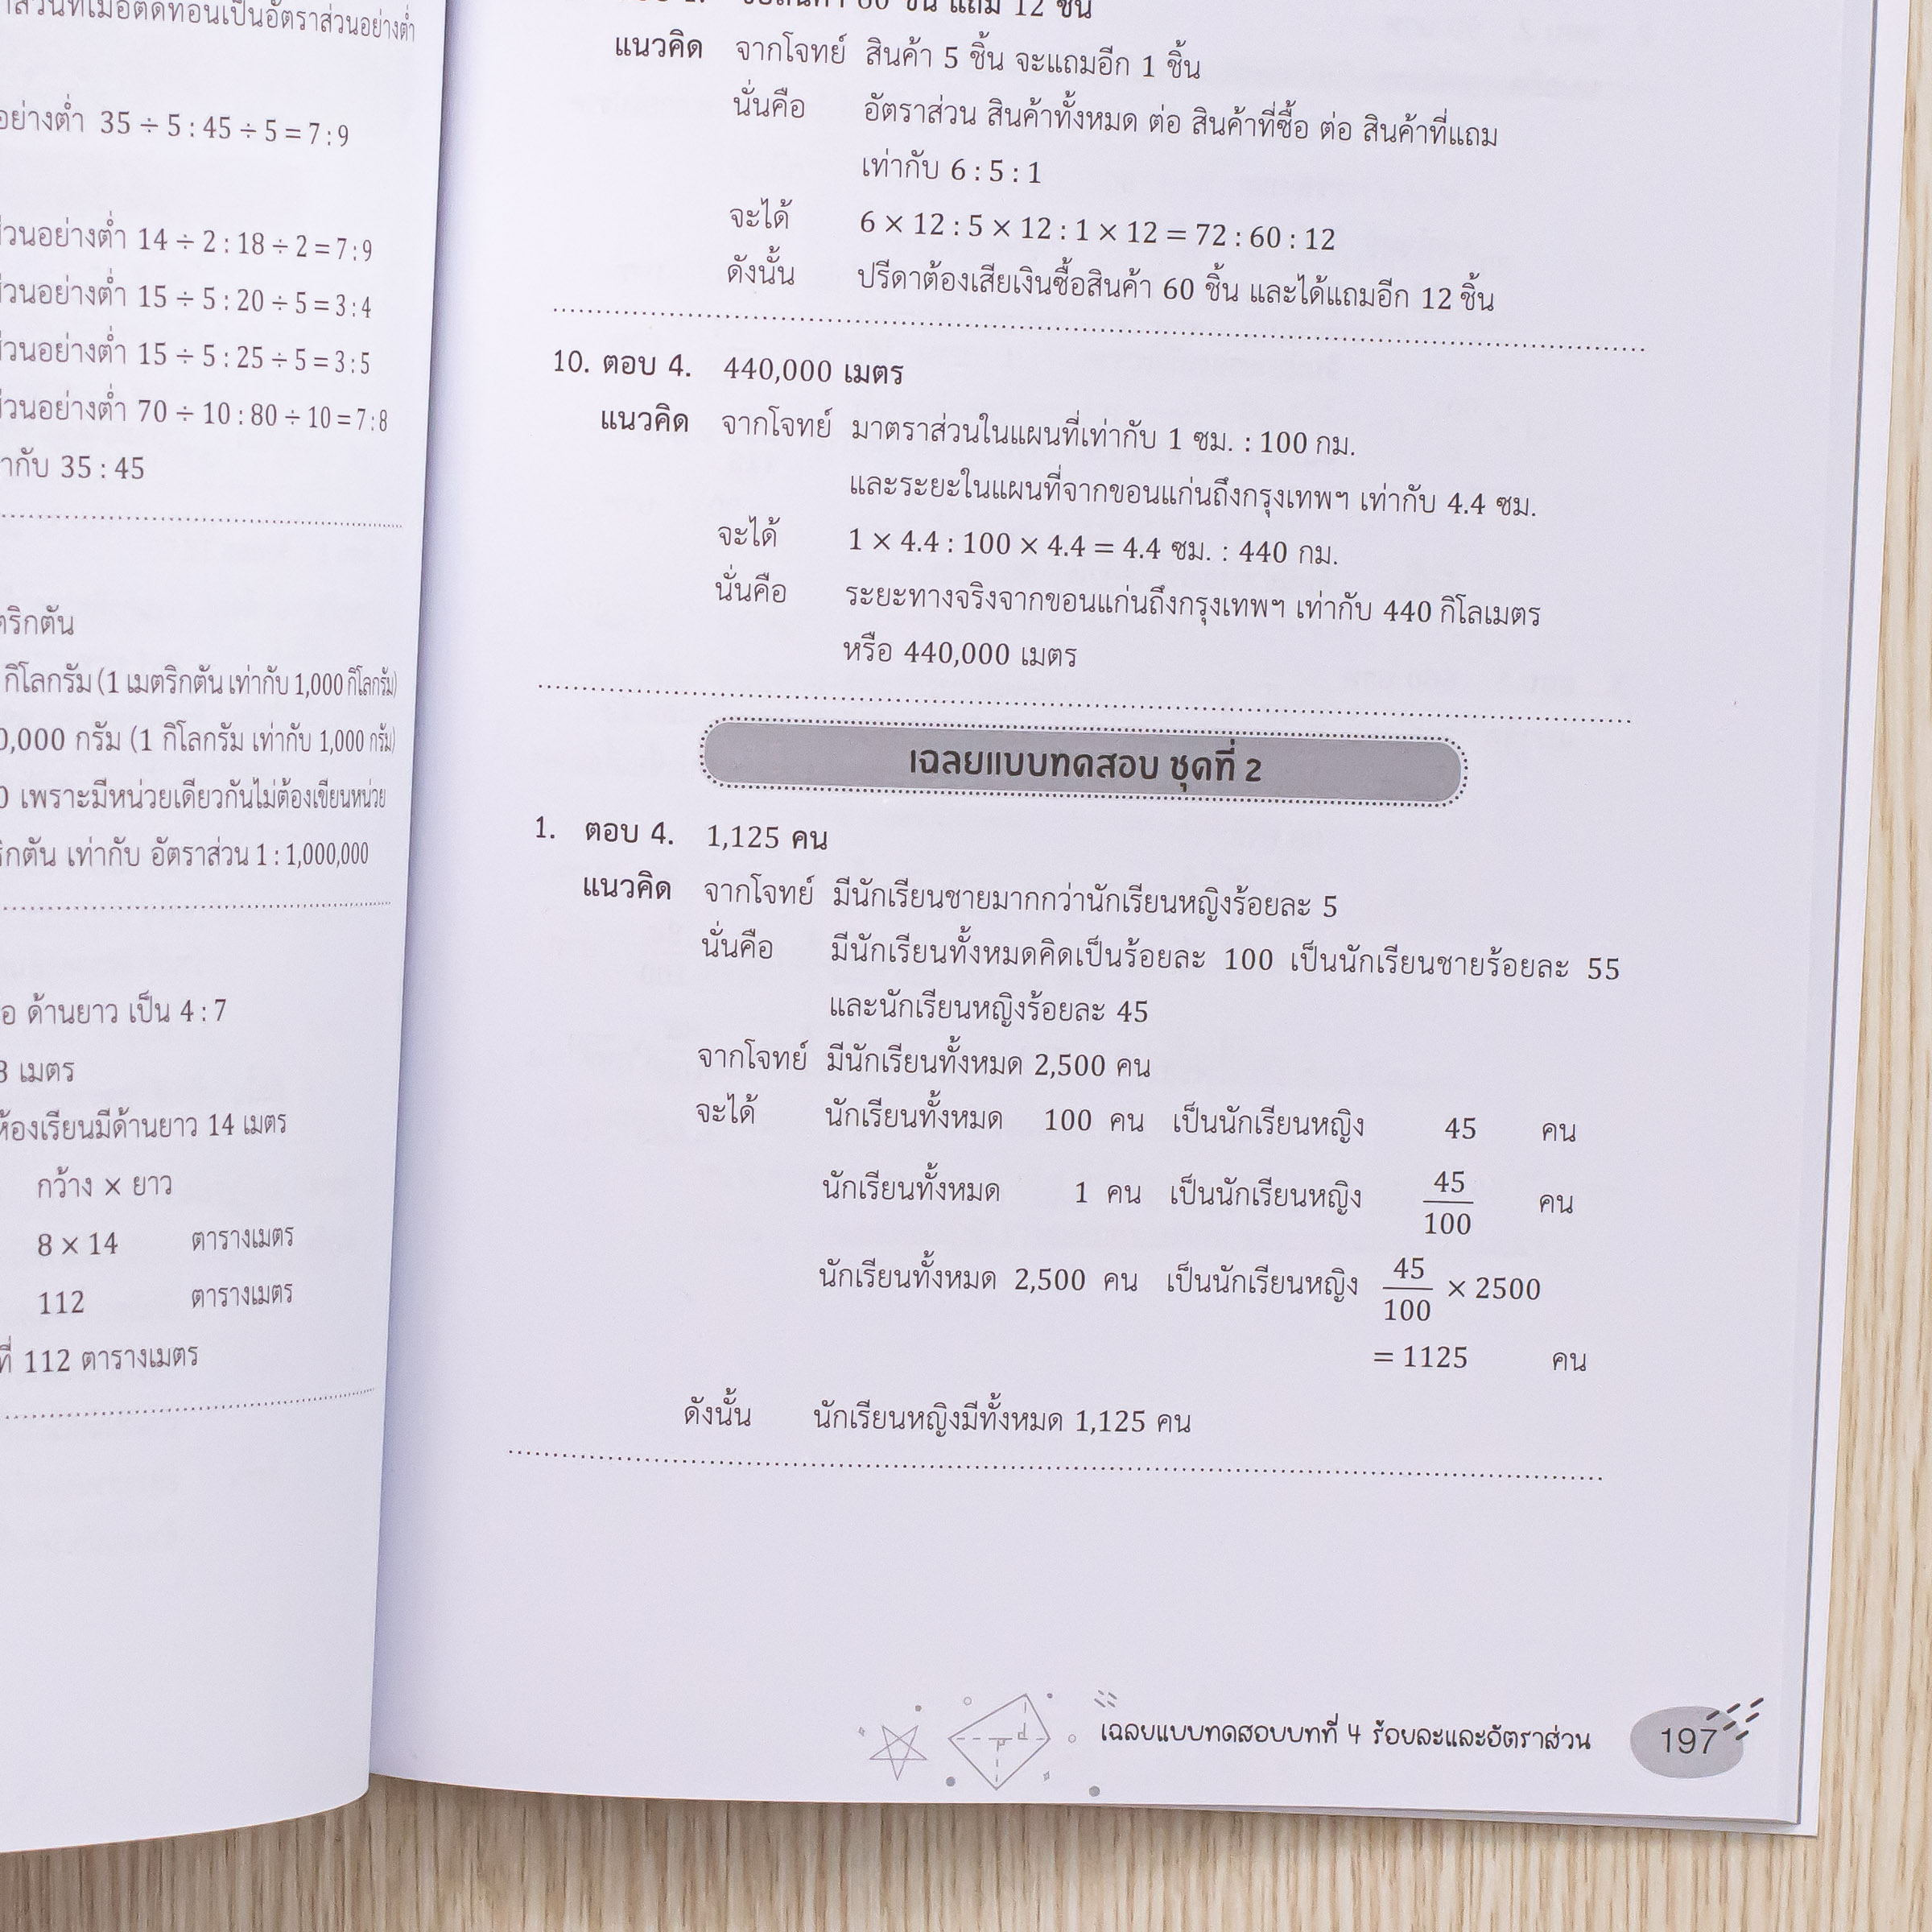 อย่างต่ำ 35 ÷ 5 : 45 ÷ 5 = 7 : 9
อย่างต่ำ 14 ÷ 2 : 18 ÷ 2 = 7 : 9
อย่างต่ำ 15 ÷ 5 : 20 ÷ 5 = 3 : 4
อย่างต่ำ 15 ÷ 5 : 25 ÷ 5 = 3 : 5
อย่างต่ำ 70 ÷ 10 : 80 ÷ 10 = 7 : 8
35 : 45
กิโลกรัม (1 เมตริกตัน เท่ากับ 1,000 กิโลกรัม)
กรัม (1 กิโลกรัม เท่ากับ 1,000 กรัม)
เพราะมีหน่วยเดียวกันไม่ต้องเขียนหน่วย
เท่ากับ อัตราส่วน 1 : 1,000,000
ด้านยาว เป็น 4 : 7
เมตร
ห้องเรียนมีด้านยาว 14 เมตร
กว้าง × ยาว
8 × 14 ตารางเมตร
112 ตารางเมตร
112 ตารางเมตร
60 ชิ้น แถม 12 ชิ้น
แนวคิด จากโจทย์ สินค้า 5 ชิ้น จะแถมอีก 1 ชิ้น
นั่นคือ อัตราส่วน สินค้าทั้งหมด ต่อ สินค้าที่ซื้อ ต่อ สินค้าที่แถม
เท่ากับ 6 : 5 : 1
จะได้ 6 × 12 : 5 × 12 : 1 × 12 = 72 : 60 : 12
ดังนั้น ปรีดาต้องเสียเงินซื้อสินค้า 60 ชิ้น และได้แถมอีก 12 ชิ้น
10. ตอบ 4. 440,000 เมตร
แนวคิด จากโจทย์ มาตราส่วนในแผนที่เท่ากับ 1 ซม. : 100 กม.
และระยะในแผนที่จากขอนแก่นถึงกรุงเทพฯ เท่ากับ 4.4 ซม.
จะได้ 1 × 4.4 : 100 × 4.4 = 4.4 ซม. : 440 กม.
นั่นคือ ระยะทางจริงจากขอนแก่นถึงกรุงเทพฯ เท่ากับ 440 กิโลเมตร
หรือ 440,000 เมตร
เฉลยแบบทดสอบ ชุดที่ 2
1. ตอบ 4. 1,125 คน
แนวคิด จากโจทย์ มีนักเรียนชายมากกว่านักเรียนหญิงร้อยละ 5
นั่นคือ มีนักเรียนทั้งหมดคิดเป็นร้อยละ 100 เป็นนักเรียนชายร้อยละ 55
และนักเรียนหญิงร้อยละ 45
จากโจทย์ มีนักเรียนทั้งหมด 2,500 คน
จะได้ นักเรียนทั้งหมด 100 คน เป็นนักเรียนหญิง 45 คน
นักเรียนทั้งหมด 1 คน เป็นนักเรียนหญิง 45/100 คน
นักเรียนทั้งหมด 2,500 คน เป็นนักเรียนหญิง 45/100 × 2500
= 1125 คน
ดังนั้น นักเรียนหญิงมีทั้งหมด 1,125 คน
เฉลยแบบทดสอบบทที่ 4 ร้อยละและอัตราส่วน 197